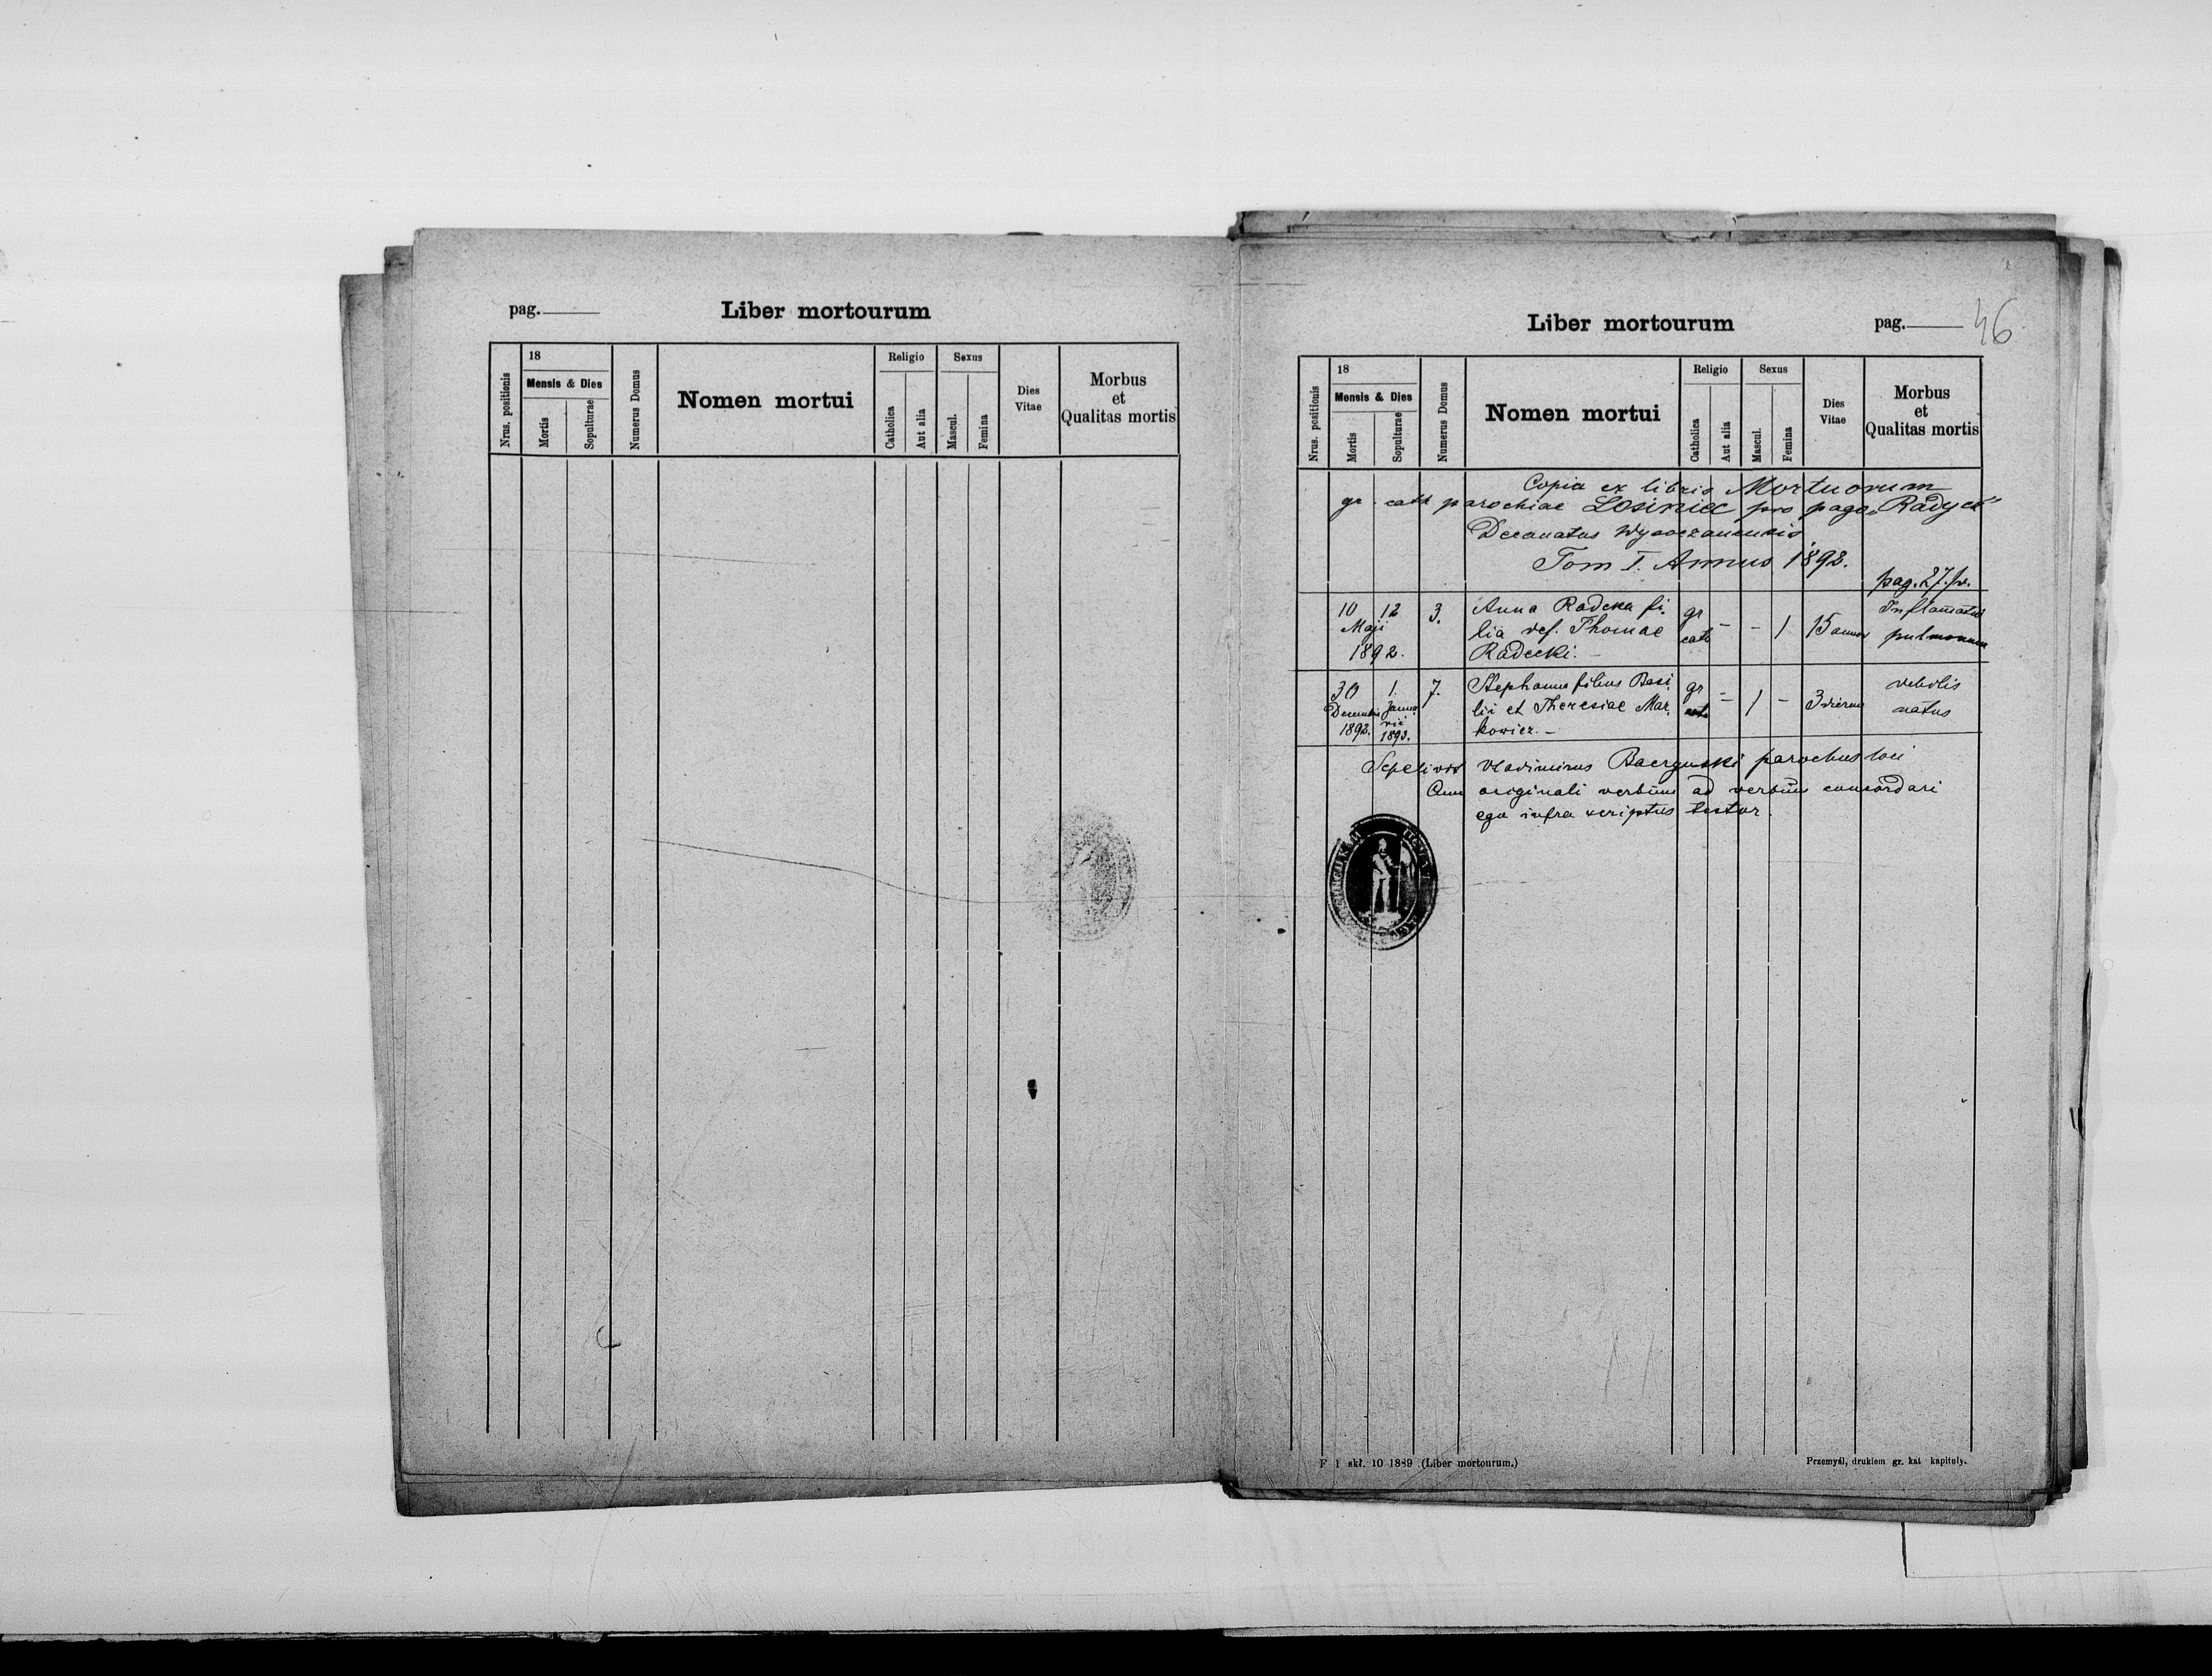 pag.
Liber mortourum
Nrus. positionis
18
Mensis & Dies
Mortis
Sopulturae
Numerus Domus
Nomen mortui
Religio
Catholica
Aut alia
Sexus
Mascul.
Femina
Dies
Vitae
Morbus
et
Qualitas mortis
Liber mortourum
pag. 46
Nrus. positionis
18
Mensis & Dies
Mortis
Sopulturae
Numerus Domus
Nomen mortui
Religio
Catholica
Aut alia
Sexus
Mascul.
Femina
Dies
Vitae
Morbus
et
Qualitas mortis
Copia ex libris Mortuorum
gr. cath parochiae Losiniec pro pago „Radycz"
Decanatus Wysoczanensis
Tom I. Annus 1892.
pag. 27. v.
10 12 3. Anna Radcka fi- gr - - 1 15 annor Inflamatio
Maji lia def. Thomae cath pulmonum
1892. Radecki. -
30 1. 7. Stephanus filius Basi- gr - 1 - 3 dierum debilis
Decembris Janua- lii et Theresiae Mar- cath natus
1892. rii kowicz. -
1893.
Sepelivit Vladimirus parochus loci
Cum originali verbum ad verbum concordari
ego infra scriptus testor.
F 1 skł. 10 1889 (Liber mortourum.)
Przemyśl, drukiem gr. kat kapituły.